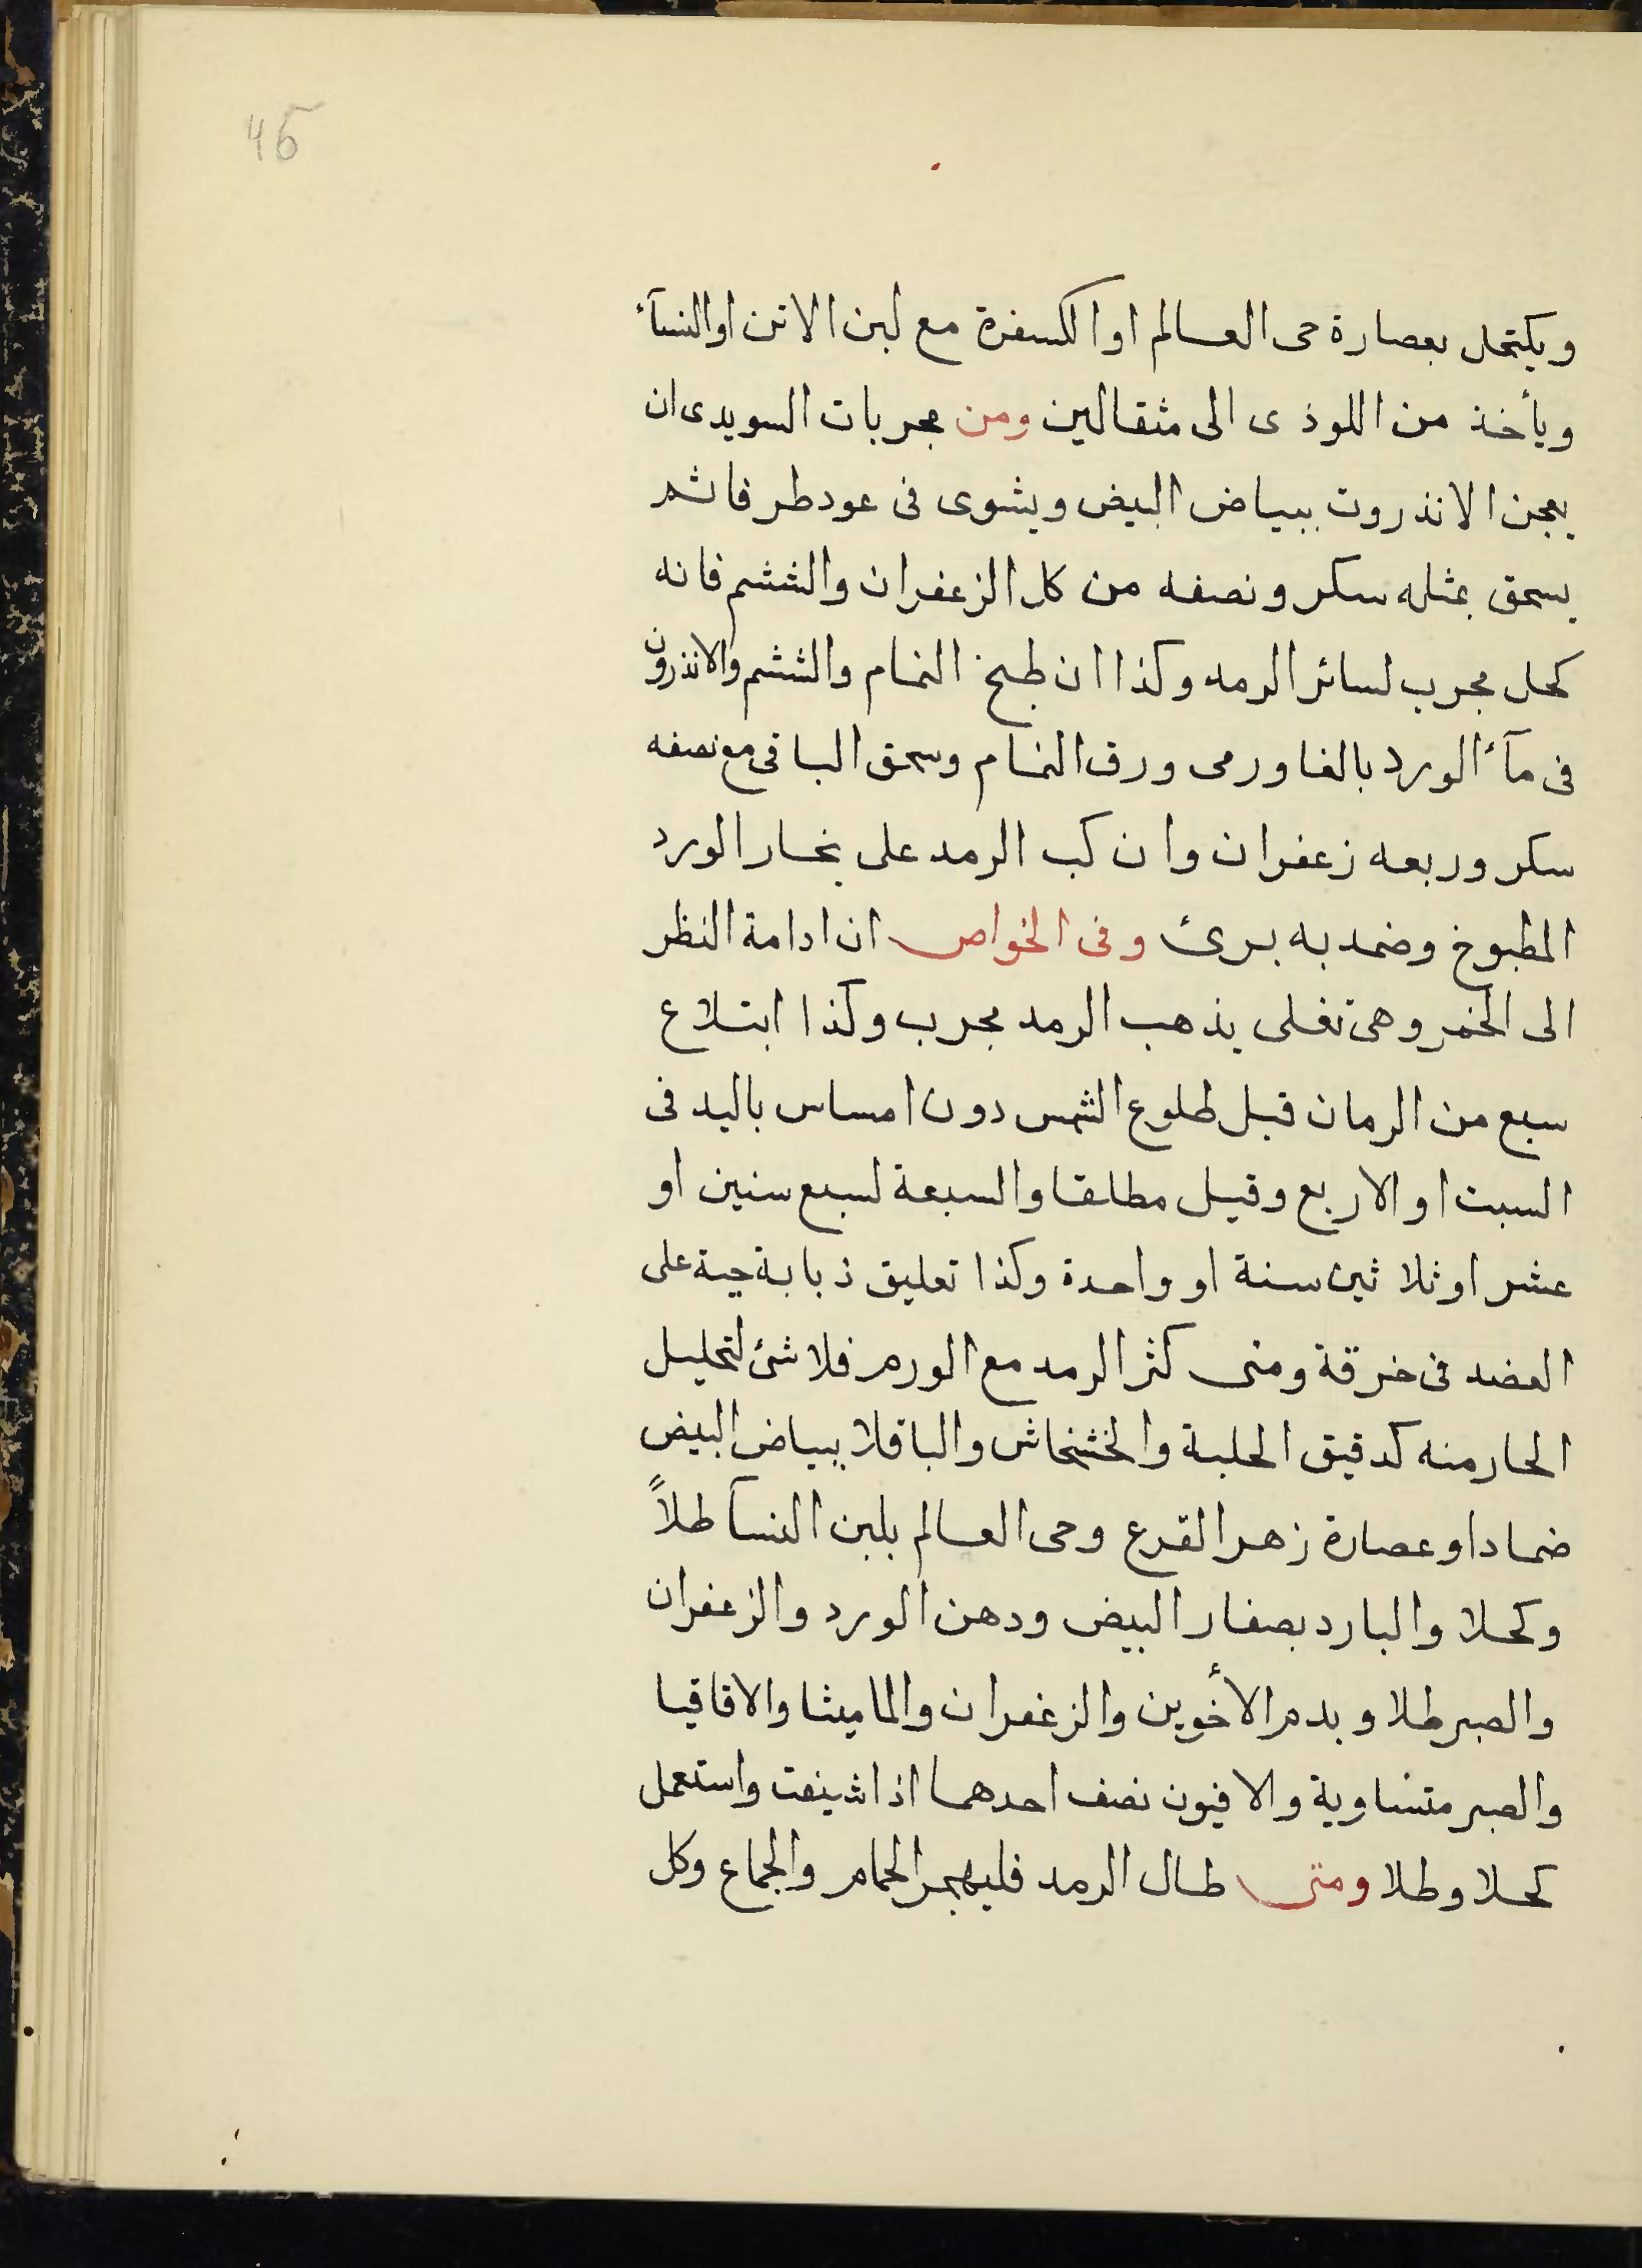 45
ويكتحل بعصارة حى العالم او الكسفرة مع لبن الاتن او النسآء
ويأخذ من اللوذى الى مثقالين ومن مجربات السويدى ان
يعجن الانذروت ببياض البيض ويشوى فى عود طرفا ثم
يسحق بمثله سكر ونصفه من كل الزعفران والششم فانه
كحل مجرب لسائر الرمد وكذا ان طبخ النمام والششم والانذروت
فى مآء الورد بالغا ورمى ورق النمام وسحق الباقى مع نصفه
سكر وربعه زعفران وان كب الرمد على بخار الورد
المطبوخ وضمد به برئ وفى الخواص ان ادامة النظر
الى الخمر وهى تغلى يذهب الرمد مجرب وكذا ابتلاع
سبع من الرمان قبل طلوع الشمس دون امساس باليد فى
السبت او الاربع وقيل مطلقا والسبعة لسبع سنين او
عشر او ثلاثين سنة او واحدة وكذا تعليق ذبابة حية على
العضد فى خرقة ومتى كثر الرمد مع الورم فلا شئ لتحليل
الحار منه كدقيق الحلبة والخشخاش والباقلا ببياض البيض
ضمادا وعصارة زهر القرع وحى العالم بلبن النسآ طلاً
وكحلا والبارد بصفار البيض ودهن الورد والزعفران
والصبر طلا وبدم الأخوين والزعفران والماميثا والاقاقيا
والصبر متساوية والافيون نصف احدهما اذا شيفت واستعمل
كحلا وطلا ومتى طال الرمد فليهجر الحمام والجماع وكل